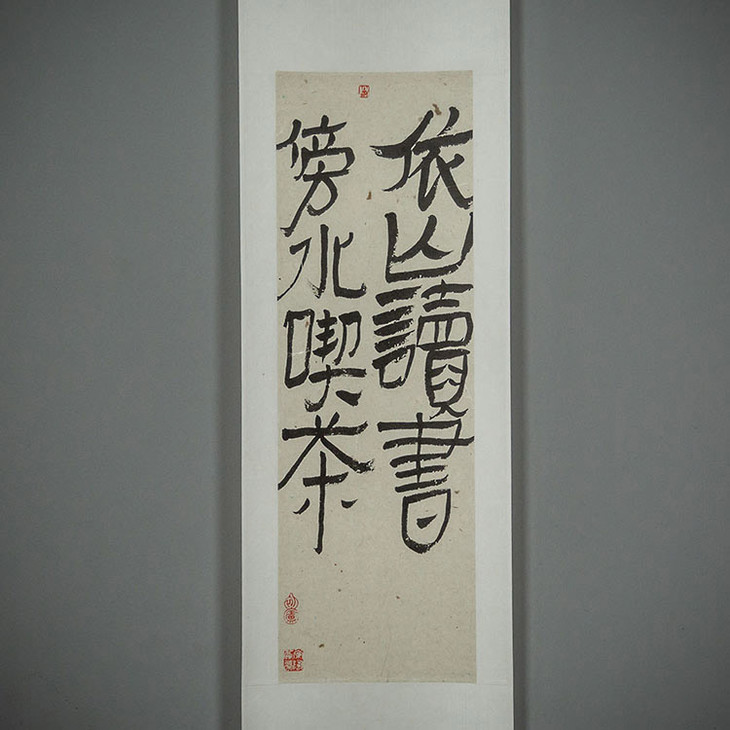 依山讀書
傍水喫茶